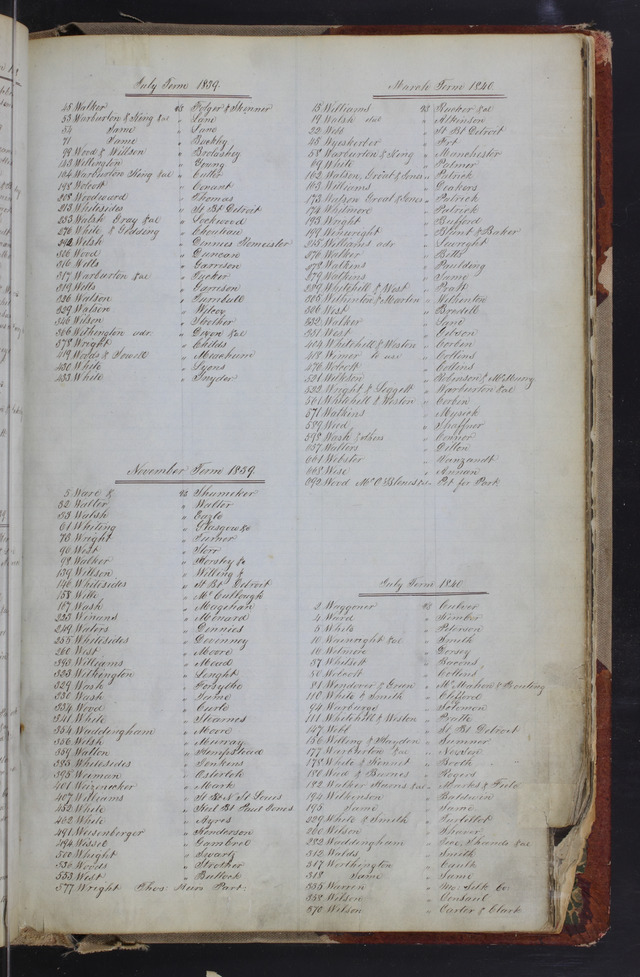 July Term 1839.
45 Walker vs Folger & Skinner
53 Warburton & King &al " Lane
54 Same " Lane
71 Same " Buckly
99 Wood & Willson "
143 Willington " Young
164 Warburton King &al "
198 Wolcott " Conant
208 Woodward " Thomas
213 Whitesides " St Bt Detroit
233 Walsh Gray &al " Lockwood
270 White & Gidding " Chouteau
292 Welsh " Dinnies Hemeister
316 Wood " Duncan
316 Wells " Garrison
317 Warburton &al " Tucker
319 Wells " Garrison
326 Watson " Turnbull
329 Watson " Wilcox
346 Wilson " Strother
366 Withington adr. " Devon &al
378 Wright " Childs
419 Woods & Sowell " Mackum
430 White " Lyons
433 White " Snyder
November Term 1839.
5 Ware & vs Shumeker
32 Walter " Walter
53 Walsh " Earle
61 Whiting " Glasgow &c
76 Wright " Turner
90 West " Storr
98 Walker " Horsley &c
139 Willson " Willing &
146 Whitesides " St Bt Detroit
158 Wills " McCullough
187 Wash " Magehan
233 Winans " Menard
249 Waters " Dinnies
255 Whitesides " Devenney
260 West " Moore
293 Williams " Mead
323 Withington " Lught
329 Wash " Forsythe
330 Wash " Same
334 Wood " Curle
341 White " Stearnes
354 Waddingham " Moore
356 Welsh " Murray
359 Walton " Hempstead
393 Whitesides " Jenkins
395 Wieman " Osterloh
401 Weizenecker " Mark
407 Williams " St Bt N St Louis
452 White " Stal Bt Paul Jones
462 White " Ayres
491 Weisenberger " Henderson
494 Wessel " Gambrel
500 Whight " Swartz
530 Woods " Strother
553 West " Bullock
577 Wright Thos. Part:
March Term 1840.
13 Williams vs Rucker &al
19 Walsh " Atkinson
22 Webb " St Bt Detroit
45 Wyeskerber " Fort
58 Warburton & King " Manchester
69 White " Palmer
162 Watson, Groat & Jones " Patrick
163 Williams " Deakers
173 Watson Groat & Jones " Patrick
174 Whitmore " Patrick
193 Wright " Bufford
199 Wainwright " Blunt & Baker
245 Williams adr. " Seawright
276 Walker " Betts
278 Watkins " Paulding
279 Watkins " Same
289 Whitehill & West " Pratt
305 Withinton & Martin " Withinton
306 West " Bredell
332 Walker " Lane
351 West " Colson
404 Whitehill & Weston " Corbin
418 Weimer to use " Collins
476 Wolcott " Collins
521 Wilkson " Robinson & McMurry
523 Wright & Leggett " Warburton &al
561 Whitehill & Weston " Corbin
571 Watkins " Mysick
589 Weed " Shaffner
598 Wash & others " Connor
637 Walters " Dillon
661 Webster " Vanzandt
668 Wise " Annan
692 Wood Mc O'Blenis &c. Pet for Part
July Term 1840
2 Waggoner vs Culver
4 Ward " Kember
5 White " Peterson
10 Wainright &al " Smith
16 Wetmore " Dorsey
37 Whitsett " Bacons
50 Wolcott " Collins
81 Wendover & Green " McMahon & Bowling
118 White & Smith " Clifford
94 Warburgo " Solomon
111 Whitehill & Weston " Pratte
147 Webb " St Bt Detroit
156 Willing & Haydon " Sumner
177 Warburton &al " Nexton
178 White & Kinnet " Booth
180 Wind & Barnes " Rogers
182 Walker Harris &al " Marks & Field
194 Wilkinson " Baldwin
195 Same " Same
229 White & Smith " Guillet
260 Wilson " Shaver
282 Waddingham " Geo. Shands &al
312 Walds " Smith
317 Worthington " Caulk
318 Same " Same
335 Warren " Mo. Silk Co
352 Wilson " Centaul
370 Wilson " Carter & Clark